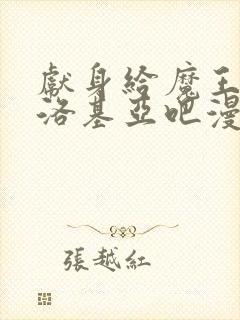 獻身給魔王
洛基亞吧漫
張越紅